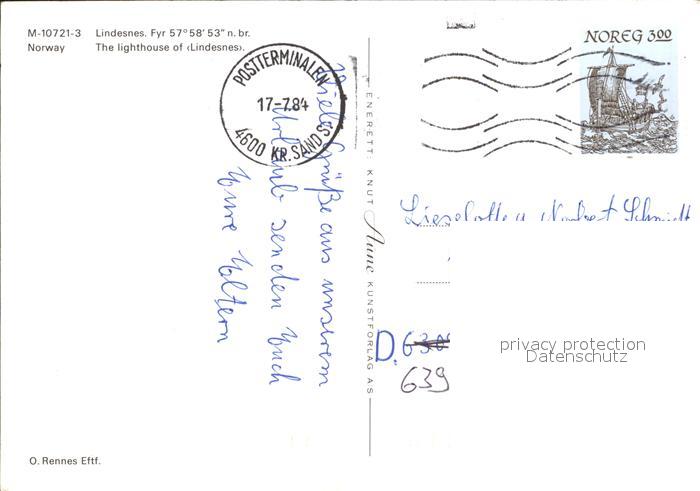 M-10721-3 Lindesnes. Fyr 57° 58' 53" n. br.
Norway The lighthouse of ‹Lindesnes›.
POSTTERMINALEN
17-7.84
4600 KR.SAND S.
NOREG 3.00
Viele Grüße aus unserem
Urlaub senden Euch
Eure Eltern
ENERETT: KNUT Aune KUNSTFORLAG A/S
Lieselotte u Norbert Schmidt
D. 630
639
privacy protection
Datenschutz
O. Rennes Eftf.